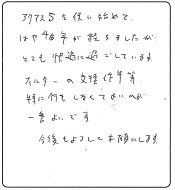 3777Sを使い始めて、
はや4年が経ちましたが、
とても快適に過ごしています。
フィルターの交換作業等、
特に何もしなくてよいのが
一番よいです
今後もよろしくお願いします。